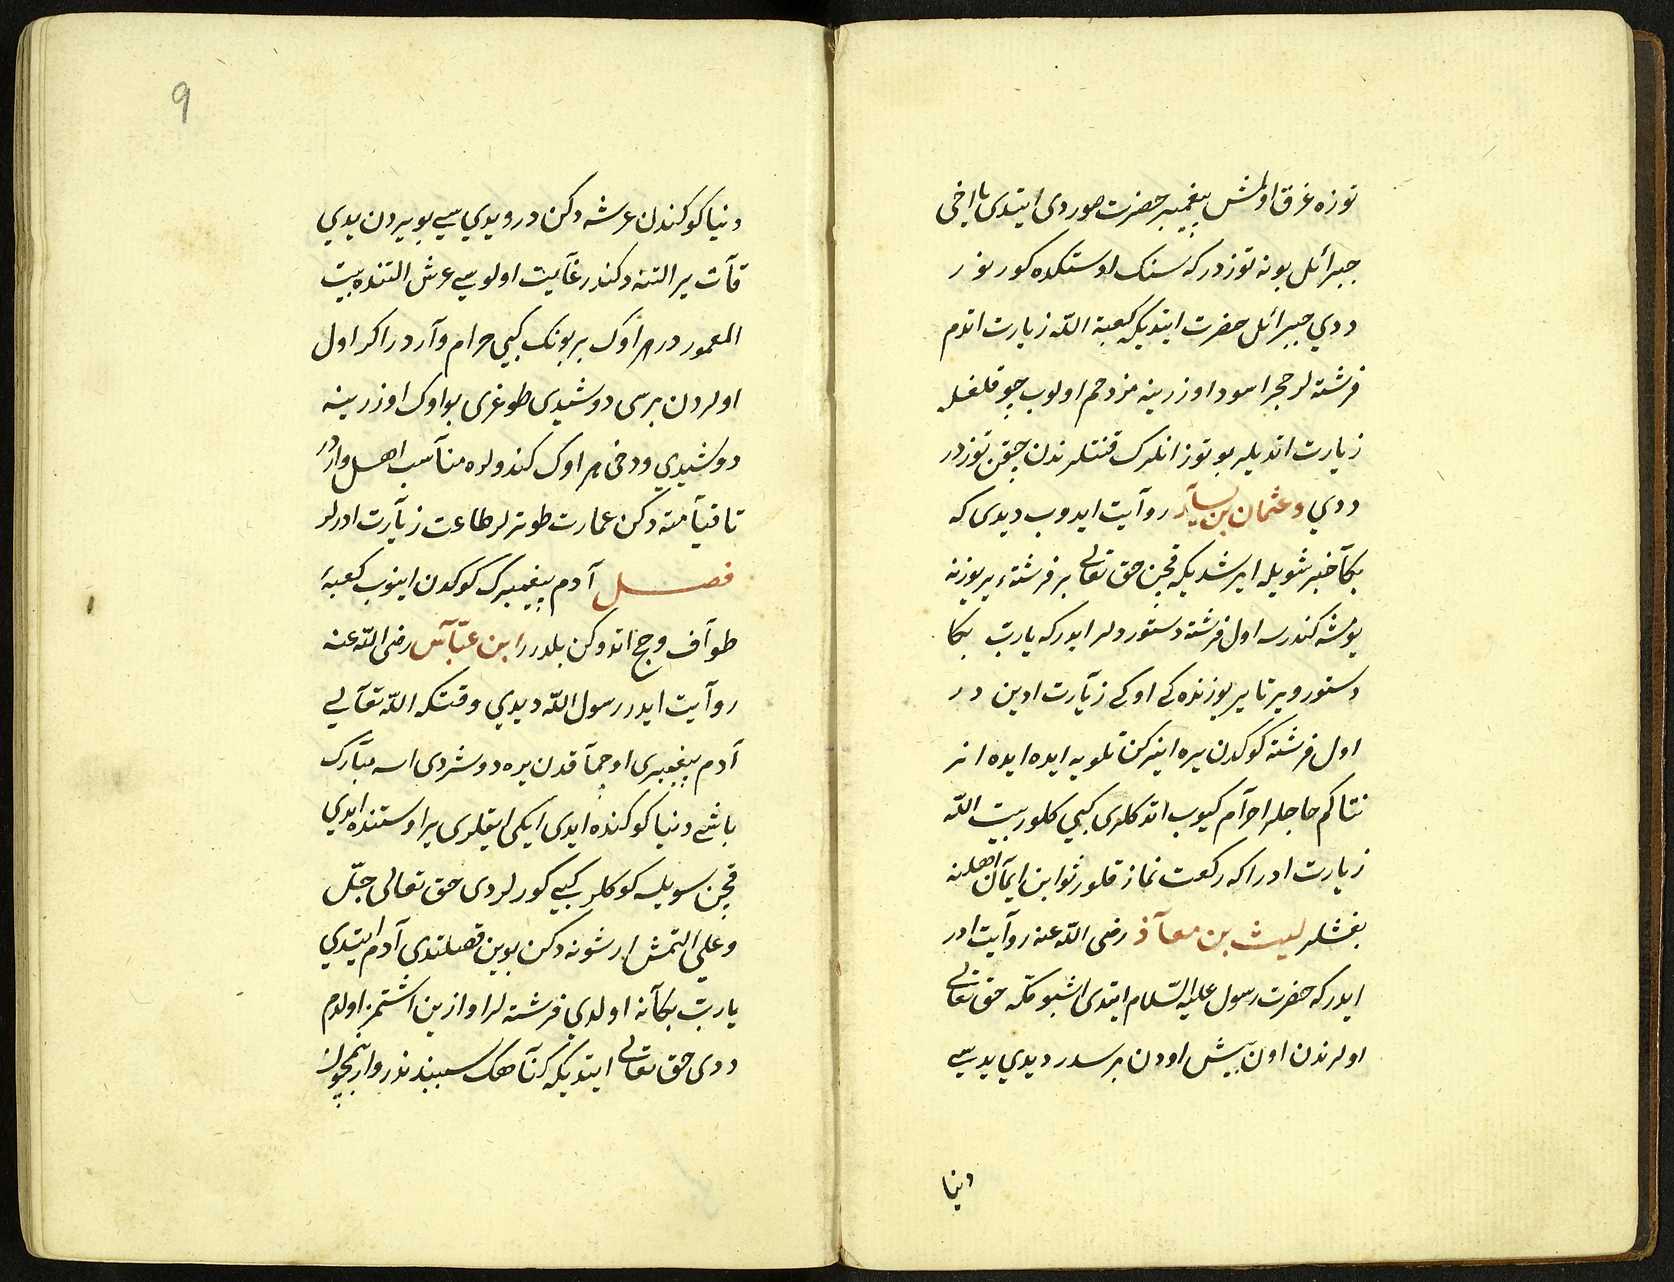 توزه غرق اولمش پیغمبر حضرت صوردی ایتدی یا اخی
جبرائل بونه توزدرکه سنك اوستکده کورینور
ددي جبرائل حضرت ایتدیکه کعبة الله زیارت اتدم
فرشته لر حجر اسود اوزرینه مزدحم اولوب چوقلغله
زیارت اتدیلر بو توز انلرك قنتلرندن چیقن توزدر
ددي وعثمان بن یسآر روآیت ایدوب دیدی که
بکآ خبر شویله ایرشدیکه قچن حق تعالی بر فرشته یر یوزنه
یوشه کندرسه اول فرشته دستور دلر ایدرکه یارب بکا
دستور ویر تا یر یوزنده کی اوکی زیآرت ادین در
اول فرشته کوکدن یره اینرکن تلویه ایده ایده انر
نتاکم حاجلر احرآم کیوب اتدکلری کبی کلور بیت الله
زیارت ادر اکه رکعت نماز قلور ثوابن ایمآن اهلنه
بغشلر لیث بن معآذ رضی الله عنه روآیت ادر
ایدرکه حضرت رسول علیه السّلام ایتدی اشبو مکه حق تعالی
اولرندن اون بیش اودن برسدر دیدي یدیسي
دنیا
9
دنیا کوکندن عرشه دکن درو یدي سي بو یردن یدي
قآت یر التنه دکندر غآیت اولوسي عرش التنده بیت
المعمور در هر اوك بر بونك کبي حرام وآردر اکر اول
اولردن برسی دوشیدی طوغری بو اوك اوزرینه
دوشیدي ودخی هر اوك کندولره منآسب اهل واردر
تا قیآمته دکن عمارت طوترلر طاعت زیآرت ادرلر
فصل آدم پیغمبرك کوکدن اینوب کعبهٔ
طوآف وحج اتدوکن بلدرر ابن عبّآس رضی الله عنه
روآیت ایدر رسول الله دیدي وقتکه الله تعآلي
آدم پیغمبری اوچمآقدن یره دوشردی اسه مبآرك
باشی دنیا کوکنده ایدی ایکی ایقلری یر اوستنده ایدي
قچن سویلسه کوکلر کبی کورلردی حق تعالی جلّ
وعلي التمش ارشونه دکن بوین قصلتدي آدم ایتدي
یا ربّ بکآ نه اولدي فرشته لر اوازین اشتمز اولدم
ددی حق تعالی ایتدیکه کنآهك سببندندر وار بنمچون